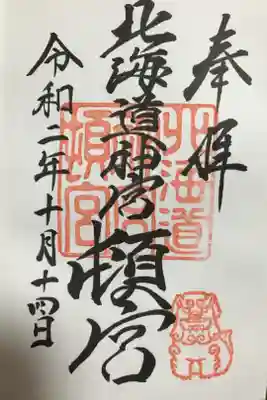 奉拝
北海道神宮頓宮
令和二年十月十四日
北海道神宮頓宮